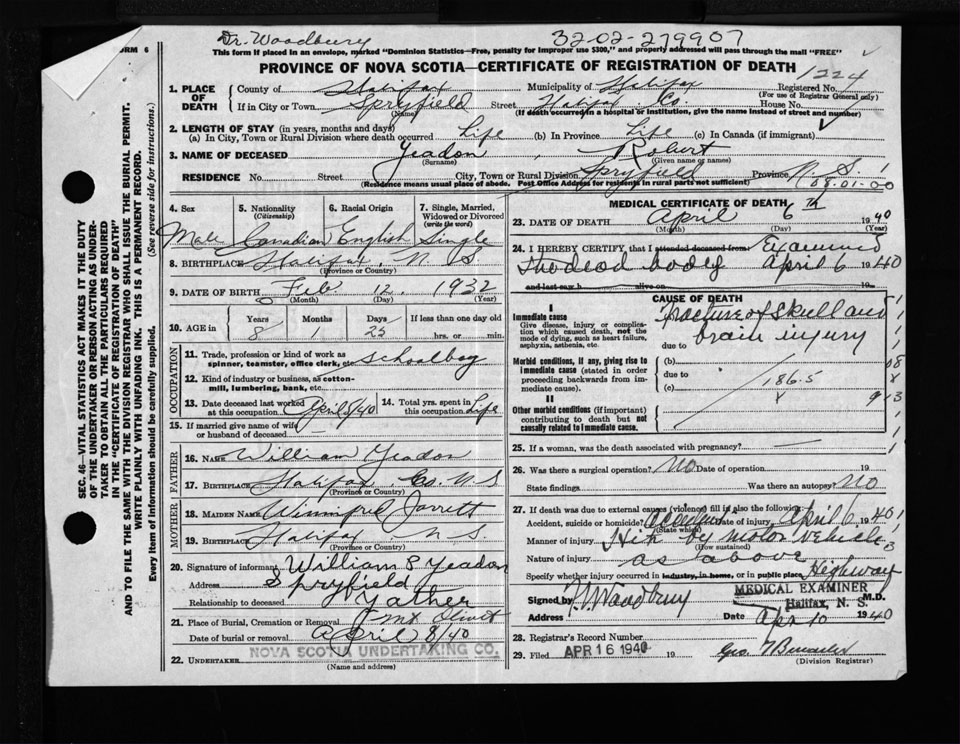 FORM 6
Dr. Woodbury
3202-279907
This form if placed in an envelope, marked "Dominion Statistics—Free, penalty for improper use $300," and properly addressed will pass through the mail "FREE"
PROVINCE OF NOVA SCOTIA—CERTIFICATE OF REGISTRATION OF DEATH
1. PLACE OF DEATH
County of Halifax Municipality of Halifax Registered No. 1224
(For use of Registrar General only)
If in City or Town Spryfield Street Halifax Co. House No.
(Name) (If death occurred in a hospital or institution, give the name instead of street and number)
2. LENGTH OF STAY (in years, months and days)
(a) In City, Town or Rural Division where death occurred Life (b) In Province Life (c) In Canada (if immigrant)
3. NAME OF DECEASED Yeadon, Robert
(Surname) (Given name or names)
RESIDENCE No. Street City, Town or Rural Division Spryfield Province N.S.
(Residence means usual place of abode. Post Office Address for residents in rural parts not sufficient)
08.01-00
4. Sex Male
5. Nationality (Citizenship) Canadian
6. Racial Origin English
7. Single, Married, Widowed or Divorced (write the word) Single
8. BIRTHPLACE Halifax, N.S.
(Province or Country)
9. DATE OF BIRTH Feb 12, 1932
(Month) (Day) (Year)
10. AGE in Years 8 Months 1 Days 25 If less than one day old
hrs. or min.
OCCUPATION
11. Trade, profession or kind of work as spinner, teamster, office clerk, etc. Schoolboy
12. Kind of industry or business, as cotton-mill, lumbering, bank, etc.
13. Date deceased last worked at this occupation April 5/40 14. Total yrs. spent in this occupation Life
15. If married give name of wife or husband of deceased
FATHER
16. NAME William Yeadon
17. BIRTHPLACE Halifax Co. N S
(Province or Country)
MOTHER
18. MAIDEN NAME Winnifred Jarrett
19. BIRTHPLACE Halifax N S.
(Province or Country)
20. Signature of informant William S Yeadon
Address Spryfield
Relationship to deceased Father
21. Place of Burial, Cremation or Removal Mt Olivet
Date of burial or removal April 8/40
22. UNDERTAKER NOVA SCOTIA UNDERTAKING CO.
(Name and address)
MEDICAL CERTIFICATE OF DEATH
23. DATE OF DEATH April 6th 1940
(Month) (Day) (Year)
24. I HEREBY CERTIFY, that I attended deceased from Examined
the dead body April 6 1940
and last saw h alive on 19
CAUSE OF DEATH
I
Immediate cause
Give disease, injury or complication which caused death, not the mode of dying, such as heart failure, asphyxia, asthenia, etc.
fracture of skull and
due to brain injury
Morbid conditions, if any, giving rise to immediate cause (stated in order proceeding backwards from immediate cause).
(b)
due to
(c)
186.5
II
Other morbid conditions (if important) contributing to death but not causally related to immediate cause.
25. If a woman, was the death associated with pregnancy?
26. Was there a surgical operation? No Date of operation 19
State findings Was there an autopsy? No
27. If death was due to external causes (violence) fill in also the following:
Accident, suicide or homicide? accident Date of injury April 6 1940
(State which)
Manner of injury Hit by motor vehicle
(How sustained)
Nature of injury as above
Specify whether injury occurred in industry, in home, or in public place Highway
Signed by Woodbury M.D.
MEDICAL EXAMINER
Halifax, N. S.
Address Date Apr 10 1940
28. Registrar's Record Number
29. Filed APR 16 1940 19 Geo.
(Division Registrar)
SEC. 46—VITAL STATISTICS ACT MAKES IT THE DUTY
OF THE UNDERTAKER OR PERSON ACTING AS UNDER-
TAKER TO OBTAIN ALL THE PARTICULARS REQUIRED
IN THE "CERTIFICATE OF REGISTRATION OF DEATH"
AND TO FILE THE SAME WITH THE DIVISION REGISTRAR WHO SHALL ISSUE THE BURIAL PERMIT.
WRITE PLAINLY WITH UNFADING INK. THIS IS A PERMANENT RECORD.
Every item of Information should be carefully supplied. (See reverse side for instructions.)